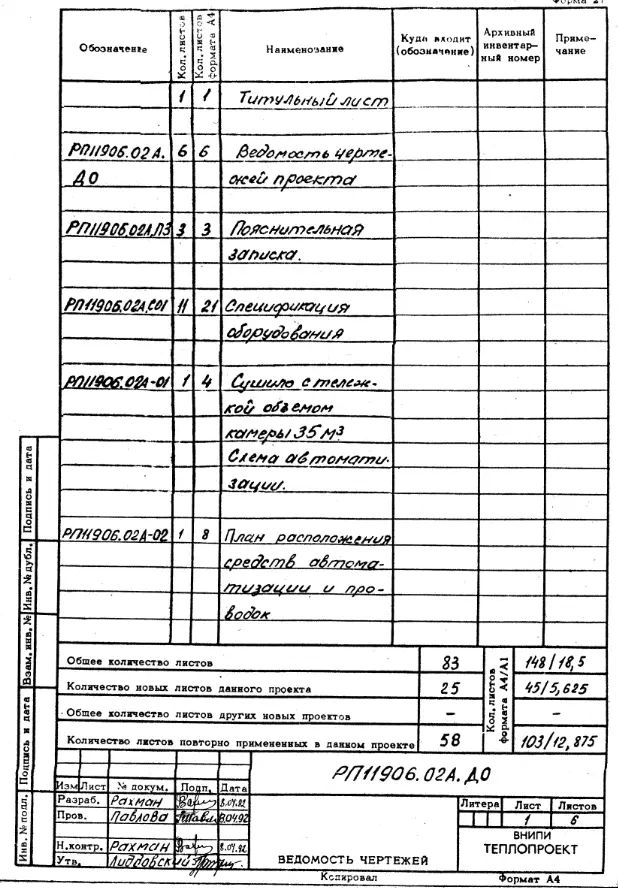 Форма 21
Обозначение | Кол. листов | Кол. листов формата А4 | Наименование | Куда входит (обозначение) | Архивный инвентарный номер | Примечание
1 1 Титульный лист
РП11906.02А. 6 6 Ведомость черте-
ДО жей проекта
РП11906.02А.ПЗ 3 3 Пояснительная
записка.
РП11906.02А.С01 11 21 Спецификация
оборудования
РП11906.02А-01 1 4 Сушило с тележ-
кой объемом
камеры 35 м3
Схема автомати-
зации.
РП11906.02А-02 1 8 План расположения
средств автома-
тизации и про-
водок
Общее количество листов 83 148/18,5
Количество новых листов данного проекта 25 45/5,625
Общее количество листов других новых проектов – –
Количество листов повторно примененных в данном проекте 58 103/12,875
Кол. листов формата А4/А1
Подпись и дата
Инв. № дубл.
Взам. инв. №
Подпись и дата
Инв. № подл.
РП11906.02А.ДО
Изм Лист № докум. Подп. Дата
Разраб. Рахман 8.04.92
Пров. Павлова 8.04.92
Н.контр. Рахман 8.04.92
Утв. Лиддовский
ВЕДОМОСТЬ ЧЕРТЕЖЕЙ
Литера Лист Листов
1 6
ВНИПИ
ТЕПЛОПРОЕКТ
Копировал Формат А4